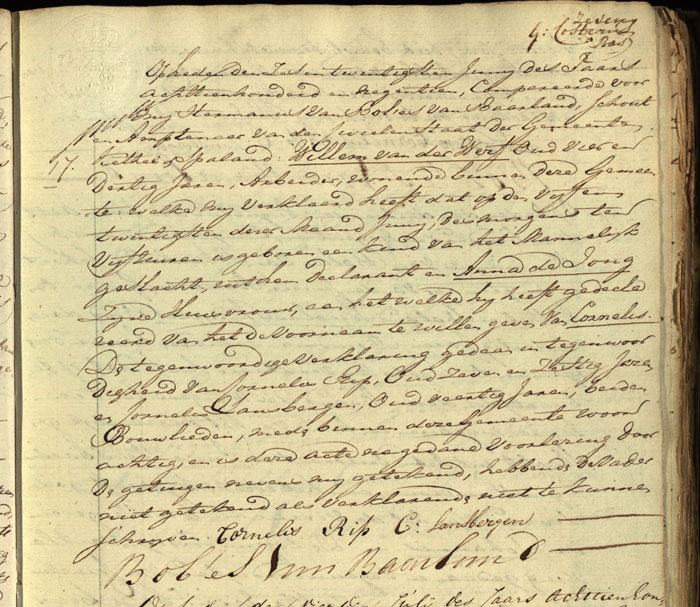 Zeven
Op heden den Zes en twintigsten Juny des Jaars
achttienhonderd en negentien, Compareerde voor
My Hermanus Van Bolses Van Baarland, Schout
en Amptenaar van den Civielen Staat der Gemeente
17. Kethel & Spaland: Willem van der Werf Oud Vier en
Dertig Jaren, Arbeider, wonende binnen deze Gemeen
te: welke my verklaard heeft dat op den Vyf en
twintigsten dezer Maand Juny, des morgens ten
Vyf Uuren is geboren een kind van het Mannelyk
geslacht, uit hem Declarant en Anna de Jong
Zyne Huisvrouw, aan het welke hy heeft gedecla
reerd van het de Voornaam te willen geven Van Cornelis.
De tegenwoordige verklaring gedaan in tegenwoor
digheid Van Cornelis Rip, Oud Zeven en Zestig Jaren
en Cornelis Lansbergen, Oud veertig Jaren, beiden
Bouwlieden, mede binnen deze Gemeente woon
achtig, en is deze acte na gedane Voorlezing door
De getuigen nevens my getekend, hebbende De Vader
niet getekend als verklarende niet te kunnen
schryven. Cornelis Rip C: Lansbergen
Van Baerland
Juli des Jaars Achttien hon